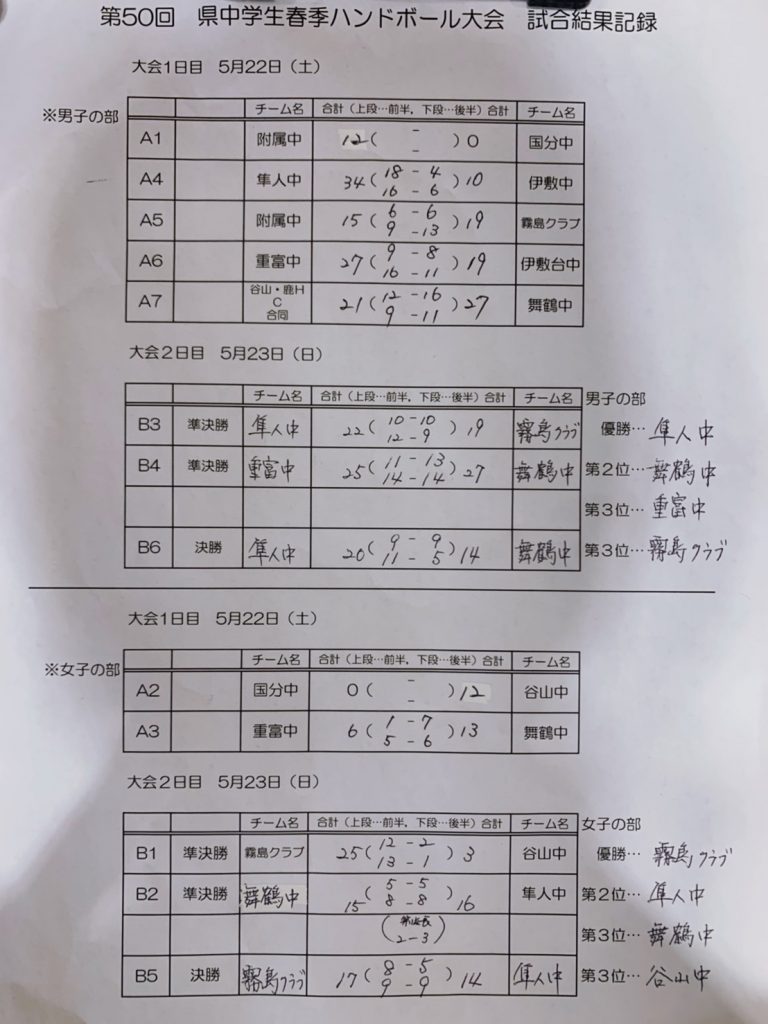 第50回　県中学生春季ハンドボール大会　試合結果記録
大会1日目　5月22日（土）
※男子の部
チーム名 合計（上段…前半，下段…後半）合計 チーム名
A1 附属中 12( - - )0 国分中
A4 隼人中 34( 18 - 4 16 - 6 )10 伊敷中
A5 附属中 15( 6 - 6 9 - 13 )19 霧島クラブ
A6 重富中 27( 9 - 8 16 - 11 )19 伊敷台中
A7 谷山・鹿HC合同 21( 12 - 16 9 - 11 )27 舞鶴中
大会2日目　5月23日（日）
チーム名 合計（上段…前半，下段…後半）合計 チーム名 男子の部
B3 準決勝 隼人中 22( 10 - 10 12 - 9 )19 霧島クラブ 優勝… 隼人中
B4 準決勝 重富中 25( 11 - 13 14 - 14 )27 舞鶴中 第2位… 舞鶴中
第3位… 重富中
B6 決勝 隼人中 20( 9 - 9 11 - 5 )14 舞鶴中 第3位… 霧島クラブ
大会1日目　5月22日（土）
※女子の部
チーム名 合計（上段…前半，下段…後半）合計 チーム名
A2 国分中 0( - - )12 谷山中
A3 重富中 6( 1 - 7 5 - 6 )13 舞鶴中
大会2日目　5月23日（日）
チーム名 合計（上段…前半，下段…後半）合計 チーム名 女子の部
B1 準決勝 霧島クラブ 25( 12 - 2 13 - 1 )3 谷山中 優勝… 霧島クラブ
B2 準決勝 舞鶴中 15( 5 - 5 8 - 8 )16 隼人中 第2位… 隼人中
( 2 - 3 ) 第3位… 舞鶴中
B5 決勝 霧島クラブ 17( 8 - 5 9 - 9 )14 隼人中 第3位… 谷山中